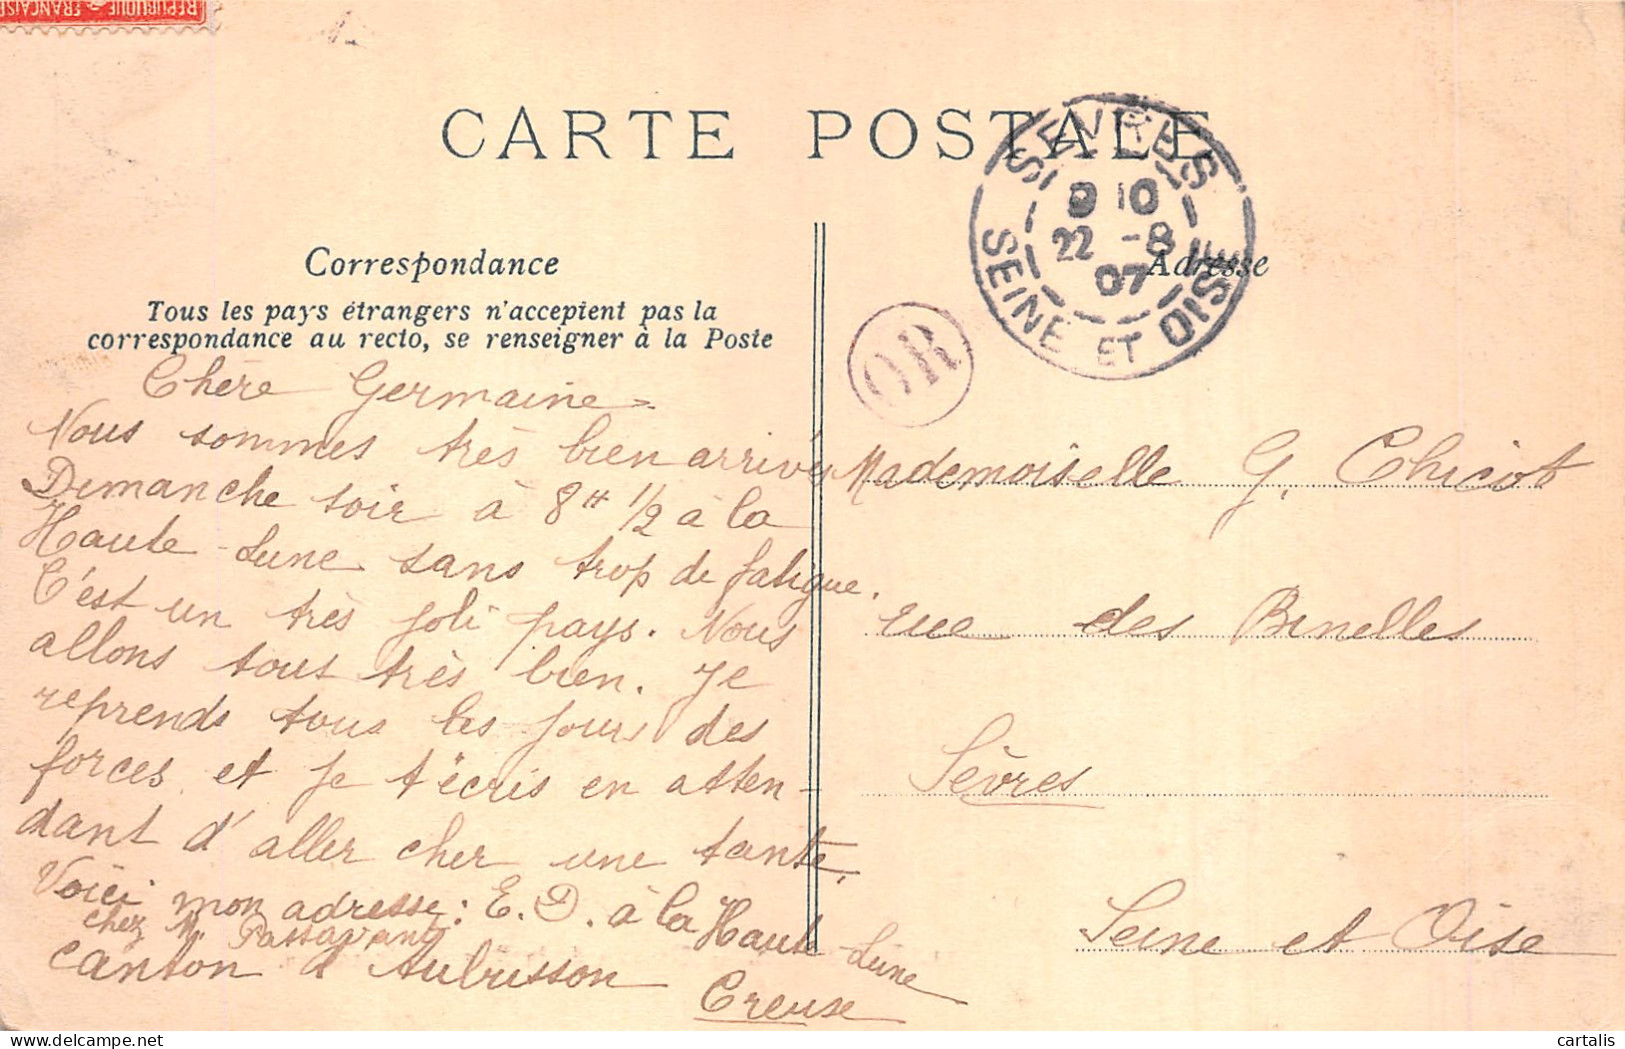 REPUBLIQUE FRANÇAISE
CARTE POSTALE
SEVRES
9 10
22 -8
07
SEINE ET OISE
OR
Correspondance
Adresse
Tous les pays étrangers n'acceptent pas la
correspondance au recto, se renseigner à la Poste
Chère Germaine
Nous sommes très bien arrivés
Dimanche soir à 8H 1/2 à la
Haute-Lune sans trop de fatigue.
C'est un très joli pays. Nous
allons tous très bien. Je
reprends tous les jours des
forces et je t'écris en atten-
dant d'aller cher une tante.
Voici mon adresse: E. D. à la Haute-Lune
chez M. Passavant
canton d'Aubusson
Creuse
Mademoiselle G. Chicot
rue des Binelles
Sèvres
Seine et Oise
cartalis